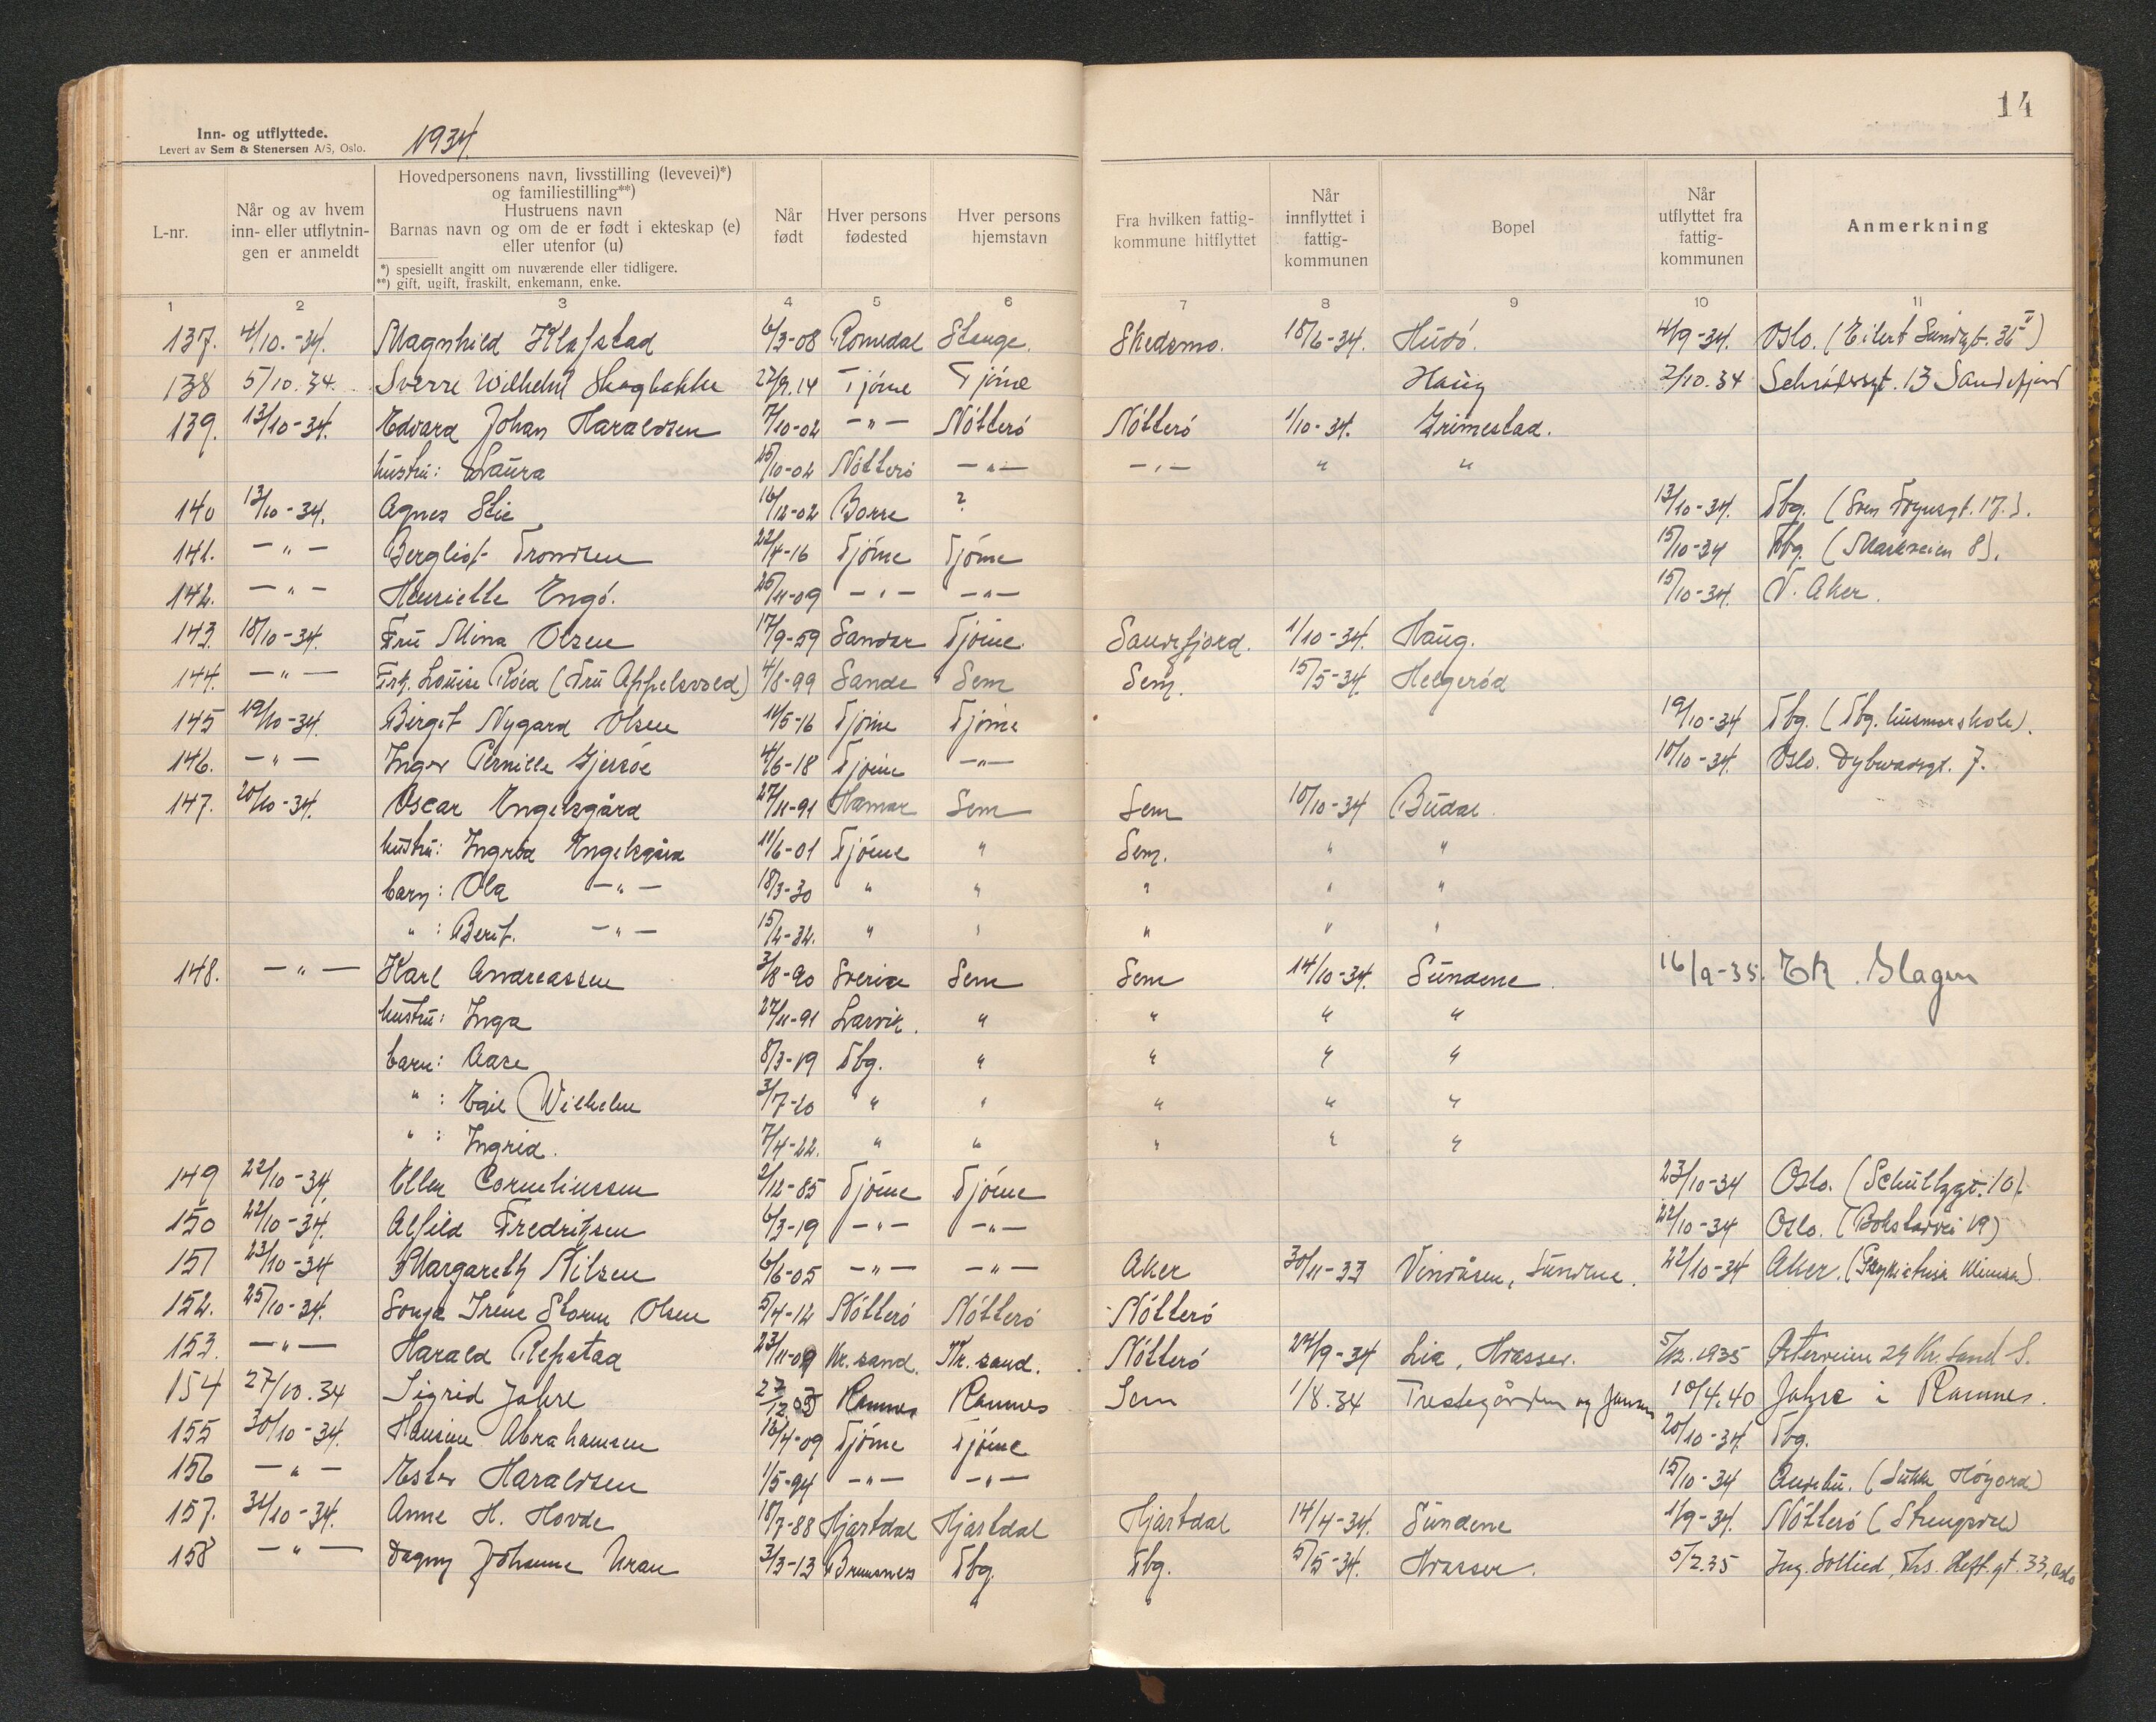 14
Inn- og utflyttede.
Levert av Sem & Stenersen A/S, Oslo.
1934.
L-nr.
Når og av hvem inn- eller utflytnin-gen er anmeldt
Hovedpersonens navn, livsstilling (levevei)*) og familiestilling**)
Hustruens navn
Barnas navn og om de er født i ekteskap (e) eller utenfor (u)
*) spesiellt angitt om nuværende eller tidligere.
**) gift, ugift, fraskilt, enkemann, enke.
Når født
Hver persons fødested
Hver persons hjemstavn
Fra hvilken fattig-kommune hitflyttet
Når innflyttet i fattig-kommunen
Bopel
Når utflyttet fra fattig-kommunen
Anmerkning
1 2 3 4 5 6 7 8 9 10 11
137. 4/10.-34. Magnhild Klafstad 6/3-08 Romedal Stange. Skedsmo. 18/6-34. Hudö. 4/9-34. Oslo. (Eilert Sundtgt. 36 II)
138 5/10.34. Sverre Wilhelm Skogbakke 22/9.14 Tjöme Tjöme Haug 2/10.34 13 Sandefjord
139. 13/10-34. Edvard Johan Haraldsen 7/10-02 -"- Nötterö Nötterö 1/10-34. Grimestad.
hustru: Laura 25/10-02 Nötterö -"- -"- " "
140 13/10-34. Agnes Lie 16/12-02 Borre ? 13/10-34. Tbg. (Sven Foynsgt. 17.).
141. -"- Bergliot Trondsen 22/4-16 Tjöme Tjöme 15/10-34 Tbg. (Markveien 8).
142. -"- Henriette Engö. 25/11-09 -"- -"- 15/10-34. V. Aker.
143. 18/10-34. Fru Mina Olsen 17/9-59 Sandar Tjöme. Sandefjord. 1/10-34. Haug.
144. -"- Frk. Louise Röed (Fru Appelsvold) 4/8-99 Sande Sem Sem. 15/5-34. Helgeröd
145 19/10-34. Birgit Nygard Olsen 11/5-16 Tjöme Tjöme 19/10-34 Tbg. (Tbg. husmorskole).
146. -"- Inger Pernille Gjersöe 4/6-18 Tjöme -"- 10/10-34. Oslo. Dybwadsgt. 7.
147. 20/10-34. Oscar Engelsgård 27/11-91 Hamar Sem Sem 10/10-34 Budal.
hustru: Ingrid Engelsgård 11/6-01 Tjöme " Sem. " "
barn: Ola -"- 18/3-30 " " " " "
" : Berit. -"- 15/2-32. " " " " "
148. -"- Karl Andreassen 3/8-90 Sverige Sem Sem 14/10-34. Sundene. 16/9-35. Ek. Slagen
hustru: Inga 27/11-91 Larvik. " " " "
barn: Aase 8/3-19 Tbg. " " " "
" : Egil Wilhelm 3/7-20 " " " " "
" : Ingrid. 7/4-22. " " " " "
149 22/10-34. Ellen Corneliussen 2/12-85 Tjöme Tjöme 23/10-34 Oslo. (Schultzgt. 10).
150 22/10-34. Alfild Fredriksen 6/3-19 -"- -"- 22/10-34 Oslo. (Bokstadvei 19)
151 23/10-34 Margareth Nilsen 6/6-05 -"- -"- Aker 30/11-33 Vindåsen, Sundene. 22/10-34 Aker. (Psykiatrisk klinikk).
152. 25/10-34. Sonja Irene Storm Olsen 5/4-12 Nötterö Nötterö Nötterö
153. -"- Harald Repstad 23/11-09 Kr. sand. Kr. sand. Nötterö 24/9-34 Lia, Hvasser. 5/12.1935 29 Kr. sand S.
154 27/10.34 Sigrid Jahre 27/12.03 Ramnes Ramnes Sem 1/8.34 Prestegården og 10/4.40 Jahre i Ramnes.
155 30/10-34. Hansine Abrahamsen 16/4-09 Tjöme Tjöme 20/10-34. Tbg.
156 -"- Ester Haraldsen 1/5-94 -"- -"- 15/10-34 Andebu. (Sukke Höyord)
157. 31/10-34. Anne H. Hovde 18/7-88 Hjartdal Hjartdal Hjartdal 14/4-34. Sundene 1/9-34. Nötterö (Strengsdal)
158 -"- Dagny Johanne Uran 3/3-13 Brunsnes Tbg. Tbg. 5/5-34. Hvasser. 5/2.35 Ing. Sollied, Ths. Heft. gt. 33, Oslo